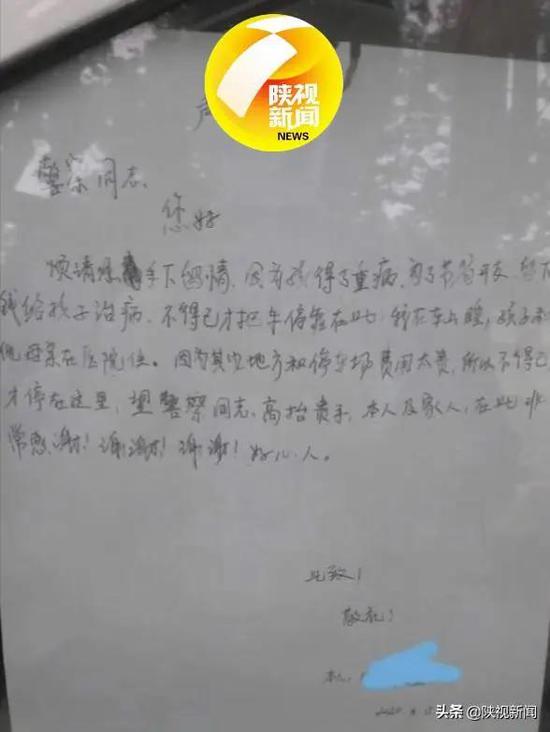 陕视
新闻
NEWS
警察同志
您好
烦请您手下留情，因为孩得了重病，为了节省开支，
钱给孩子治病，不得已才把车停靠在此，我在车上睡，孩子和
他母亲在医院住。因为其它地方和停车场费用太贵，所以不得已
才停在这里，望警察同志，高抬贵手，本人及家人，在此非
常感谢！谢谢！谢谢！好心人。
此致！
敬礼！
本人：
2020
头条 @陕视新闻